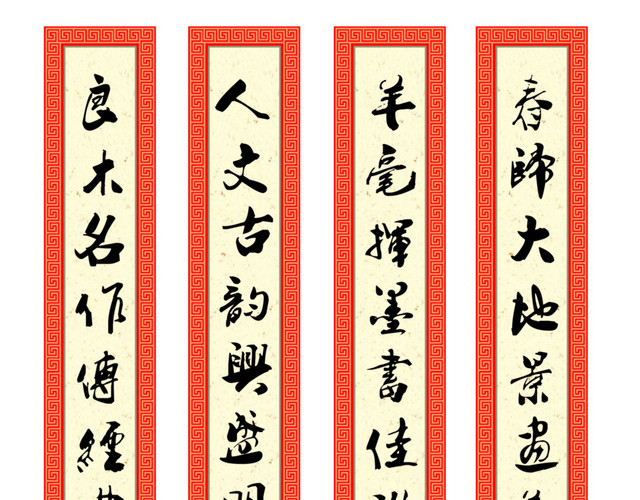 春歸大地景畫
羊毫揮墨書佳
人文古韵興盛
良木名作傳經